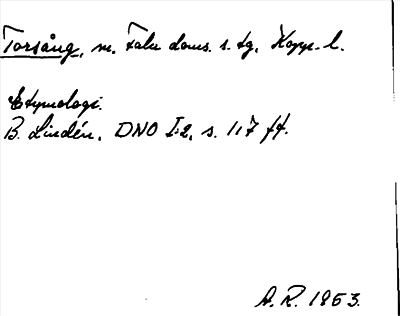 Torsång, sn. Falu doms. s. tg. Kopp. l.
Etymologi.
B. Lindén, DNO I:2, s. 117 ff.
A. R. 1953.